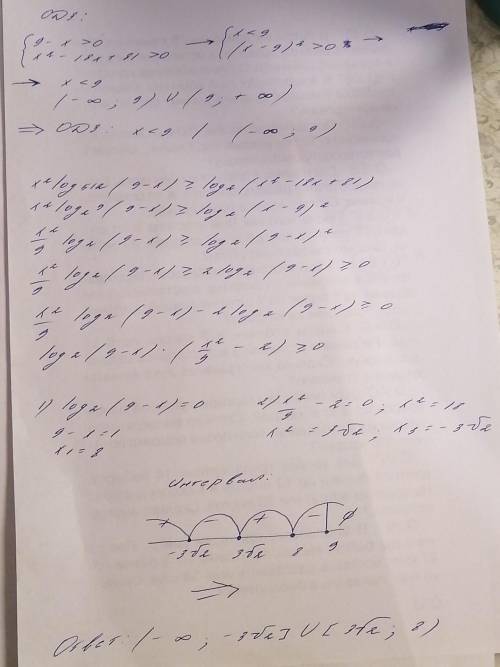 ОДЗ:
{ 9 - x > 0 → { x < 9
{ x² - 18x + 81 > 0 { (x - 9)² > 0 →
→ x < 9
(-∞ ; 9) ∪ (9 ; +∞)
⇒ ОДЗ: x < 9 | (-∞ ; 9)
x² log512 (9 - x) ≥ log2 (x² - 18x + 81)
x² log2⁹ (9 - x) ≥ log2 (x - 9)²
x²/9 log2 (9 - x) ≥ log2 (9 - x)²
x²/9 log2 (9 - x) ≥ 2 log2 (9 - x) ≥ 0
x²/9 log2 (9 - x) - 2 log2 (9 - x) ≥ 0
log2 (9 - x) · (x²/9 - 2) ≥ 0
1) log2 (9 - x) = 0 2) x²/9 - 2 = 0 ; x² = 18
9 - x = 1 x2 = 3√2 ; x3 = -3√2
x1 = 8
Интервал:
+ - + - ∅
-3√2 3√2 8 9
⇒
Ответ: (-∞ ; -3√2] ∪ [3√2 ; 8)